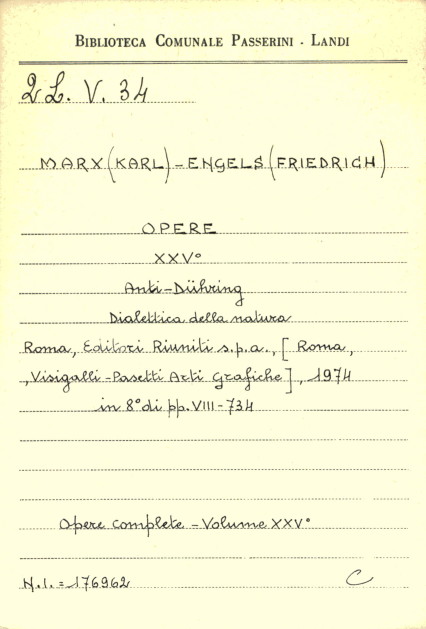 BIBLIOTECA COMUNALE PASSERINI - LANDI
2L. V. 34
MARX (KARL) - ENGELS (FRIEDRICH)
OPERE
XXV°
Anti-Dühring
Dialettica della natura
Roma, Editori Riuniti s.p.a., [Roma,
,Visigalli-Pasetti Arti Grafiche], 1974
in 8° di pp. VIII-734
Opere complete - Volume XXV°
N.I.=176962 C